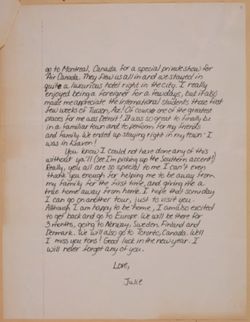 go to Montreal, Canada for a special private show for
Air Canada. They flew us all in and we stayed in
quite a luxurious hotel right in the city. I really
enjoyed being a foreigner for a few days, but it also
made me appreciate the international students those first
few weeks of Tucson, Az! Of course one of the greatest
places for me was Detroit! It was so great to finally be
in a familiar town and to perform for my friends
and family. We ended up staying right in my town: I
was in Heaven!
You know I could not have done any of this
without ya'll (See I'm picking up the Southern accent!)
Really, you all are so special to me I can't even
thank you enough for helping me to be away from
my family for the first time, and giving me a
true home away from home. I hope that someday
I can go on another tour, just to visit you.
Although I am happy to be home, I am also excited
to get back and go to Europe. We will be there for
3 months, going to Norway, Sweden, Finland and
Denmark. We will also go to Toronto, Canada. Well
I miss you tons! Good luck in the new year. I
will never forget any of you.
Love,
Julie